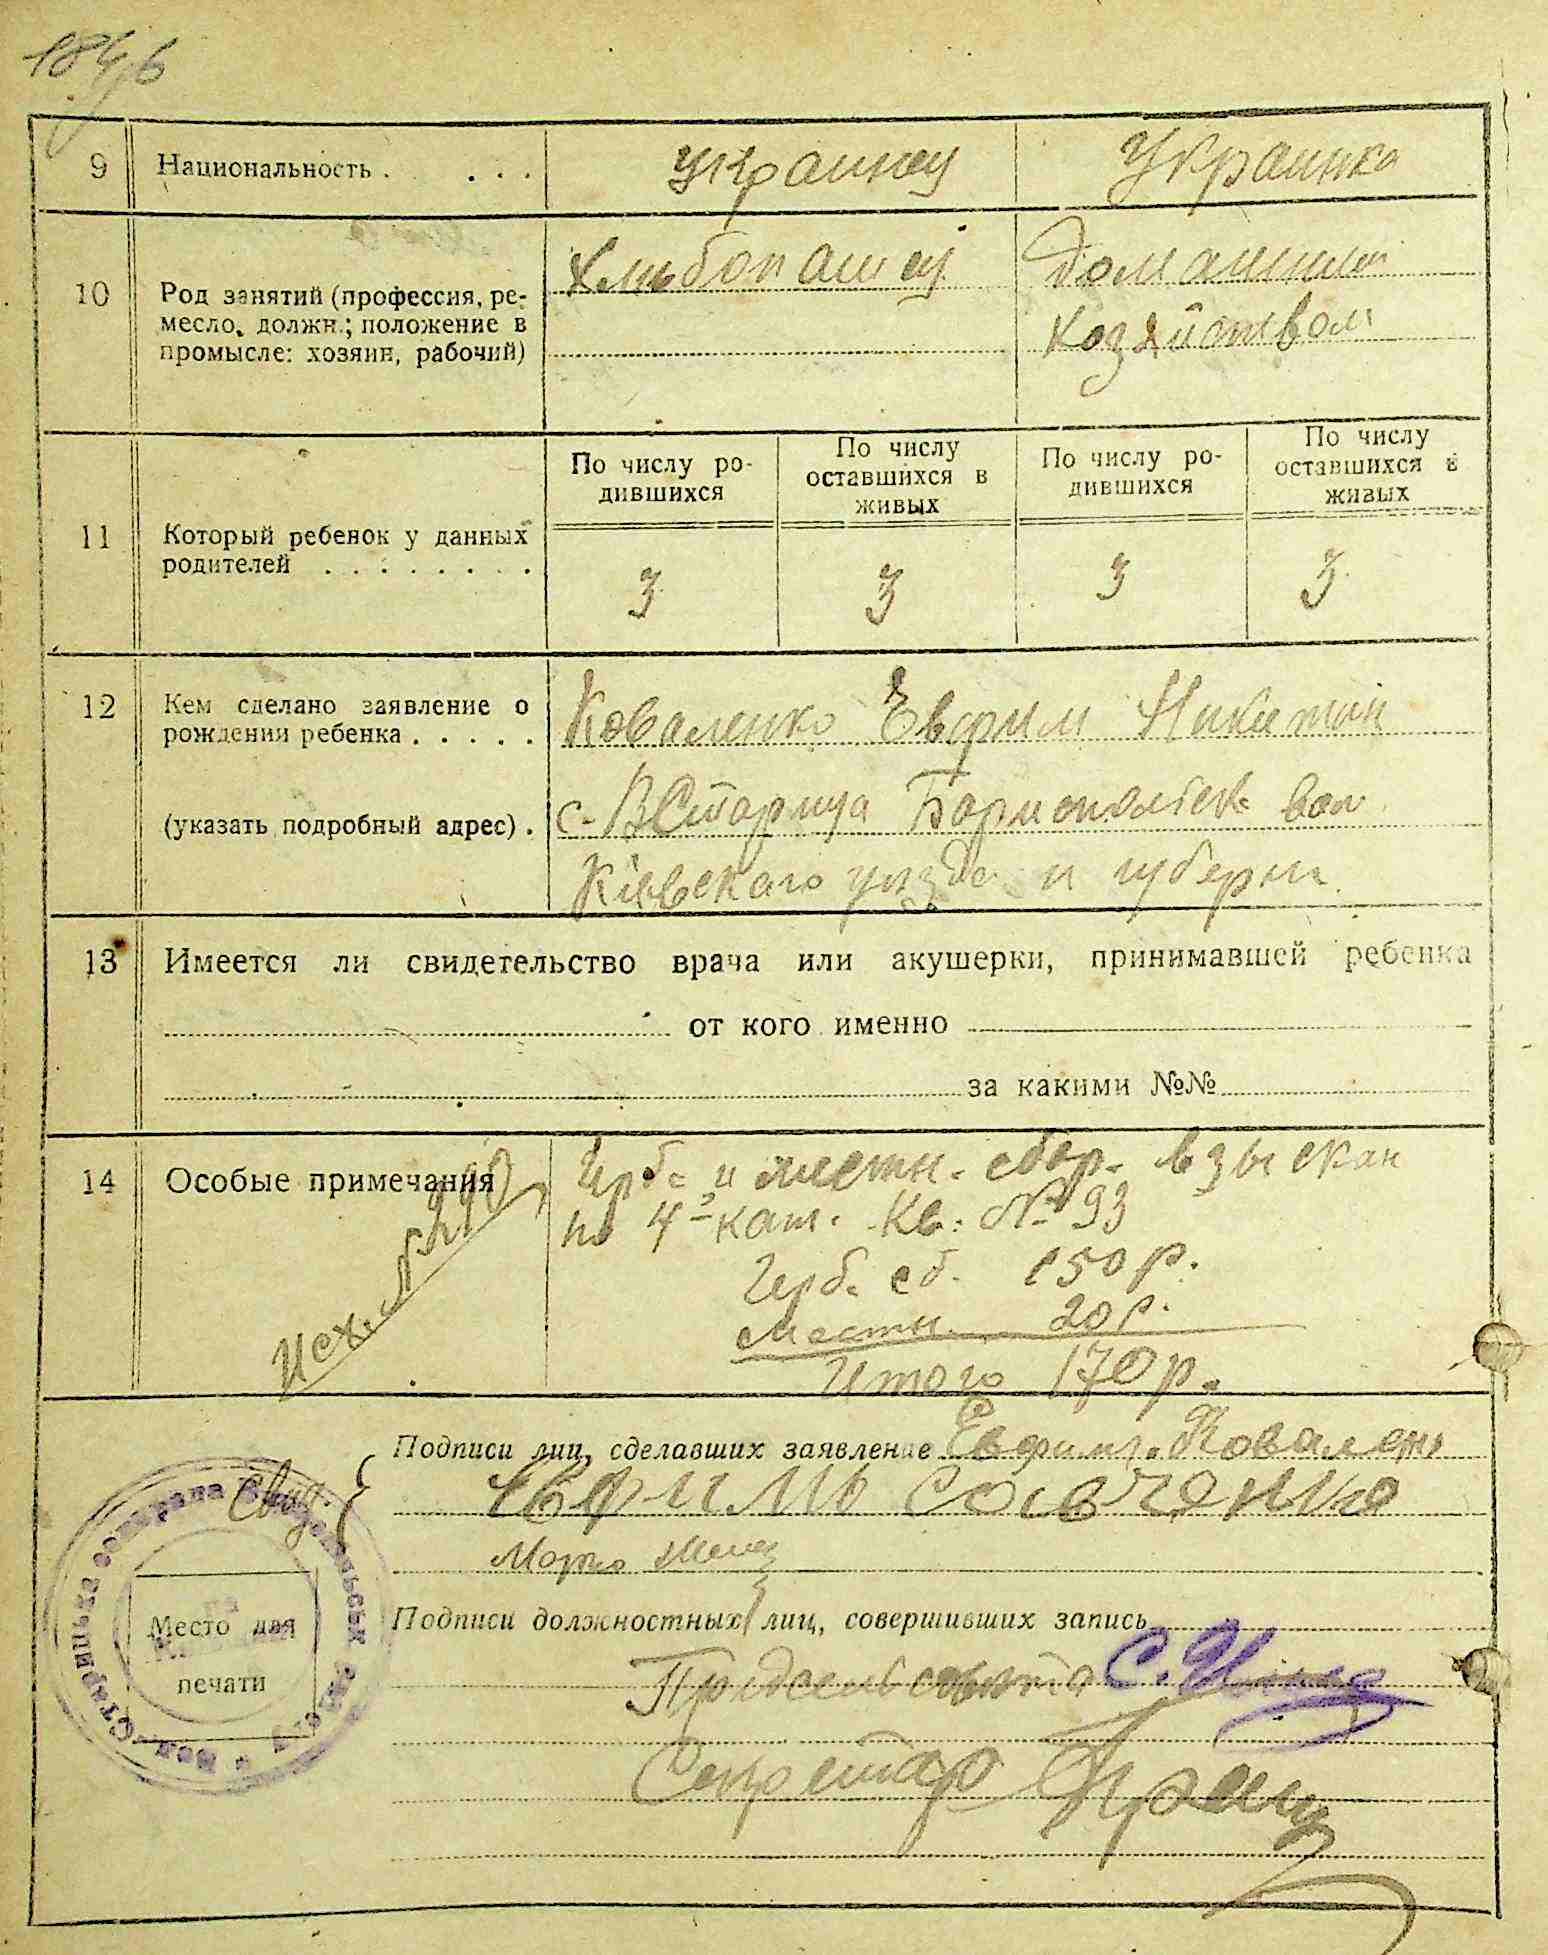 9 Национальность . . . . украинец Украинка
10 Род занятий (профессия, ре-
месло, должн.; положение в
промысле: хозяин, рабочий)
хлѣбопашец
Домашним
хозяйством
11 Который ребенок у данных
родителей . . . . . . . .
По числу ро-
дившихся
По числу
оставшихся в
живых
По числу ро-
дившихся
По числу
оставшихся в
живых
3 3 3 3
12 Кем сделано заявление о
рождении ребенка . . . . .
(указать подробный адрес) .
Коваленко Евфим Никитин
с. ВСтарица Бориспольск. вол.
Кіевскаго уѣзда и губерн.
13 Имеется ли свидетельство врача или акушерки, принимавшей ребенка
от кого именно
за какими №№
14 Особые примечания
Исх. №
Герб. и местн. сбор. взыскан
по 4 кат. Кв. № 93
Герб. сб. 150 р.
Местн. 20 р.
Итого 170 р.
Подписи лиц, сделавших заявление Евфим Коваленко
Свид.
Евфимъ Савченко
Марко
Подписи должностных лиц, совершивших запись
Место для
печати
Предсельсовета С.
Секретар